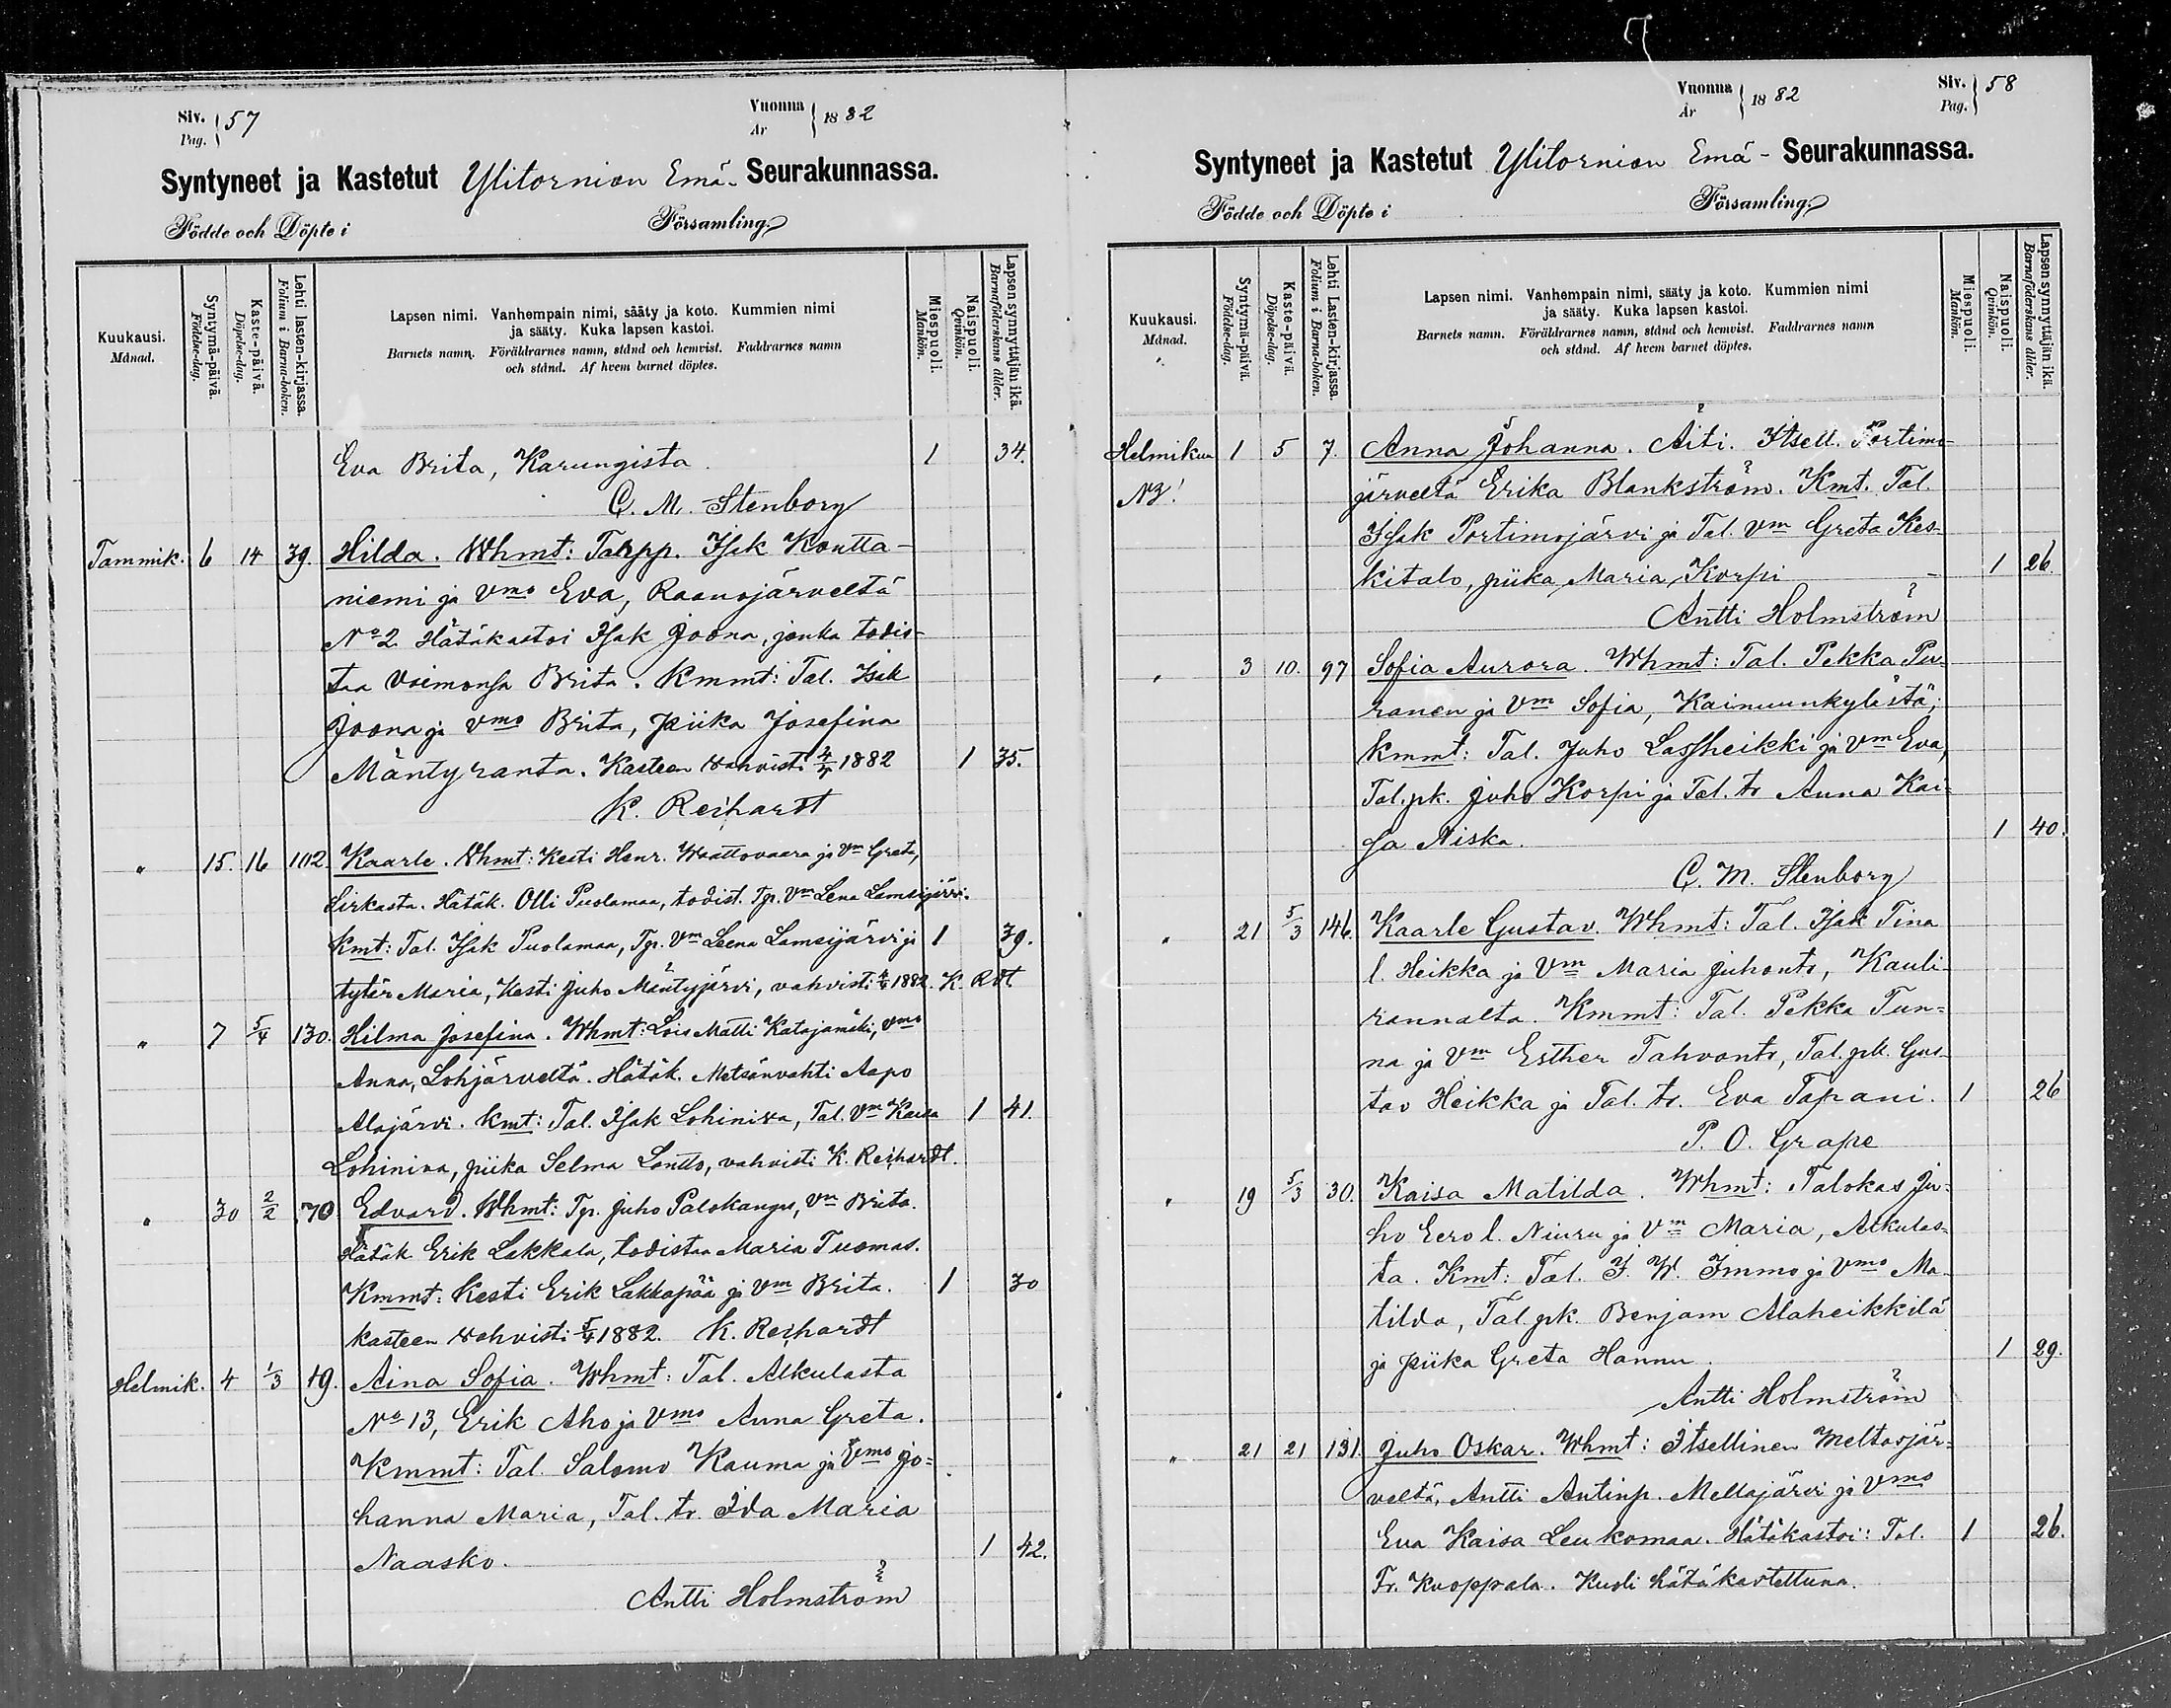 Siv. 57
Pag.
Vuonna 1882
År
Syntyneet ja Kastetut Ylitornion Emä- Seurakunnassa.
Födde och Döpte i Församling.
Kuukausi.
Månad.
Syntymä-päivä.
Födelse-dag.
Kaste-päivä.
Döpelse-dag.
Lehti lasten-kirjassa.
Folium i Barna-boken.
Lapsen nimi. Vanhempain nimi, sääty ja koto. Kummien nimi
ja sääty. Kuka lapsen kastoi.
Barnets namn. Föräldrarnes namn, stånd och hemvist. Faddrarnes namn
och stånd. Af hvem barnet döptes.
Miespuoli.
Mankön.
Naispuoli.
Qvinkön.
Lapsen synnyttäjän ikä.
Barnaföderskans ålder.
Eva Brita, Karungista. 1 34.
C. M. Stenborg
Tammik. 6 14 39. Hilda. Whmt: Talpp. Isak Koutta-
niemi ja Vmo Eva, Raanojärveltä
No 2 Hätäkastoi Isak Joona, jonka todis-
taa Vaimonsa Brita. Kmmt: Tal. Isak
Joona ja Vmo Brita, piika Josefina
Mäntyranta. Kasteen vahvisti 4/4 1882 1 35.
K. Reihardt
" 15. 16 102. Kaarle. Vhmt: Kesti Henr. Wattovaara ja Vm Greta,
Sirkasta. Hätäk. Olli Puolamaa, todist. Tp. Vm Lena Lamsijärvi.
Kmt: Tal. Isak Puolamaa, Tp. Vm Leena Lamsijärvi ja 1 39.
tytär Maria, Kesti Juho Mäntyjärvi, vahvisti 4/4 1882. K. Rdt
" 7 5/4 130. Hilma Josefina. Whmt: Lois Matti Katajamäki, Vmo
Anna, Lohjärveltä. Hätäk. Metsänvahti Aapo
Alajärvi. Kmt: Tal. Isak Lohiniva, Tal. Vm Kaisa 1 41.
Lohiniva, piika Selma Lantto, vahvisti K. Reihardt.
" 30 2/2 70 Edvard. Whmt: Tp. Juho Palokangas, Vm Brita.
Hätäk Erik Lakkala, todistaa Maria Tuomas.
Kmmt: Kesti Erik Lakkapää ja Vm Brita. 1 30
kasteen vahvisti 5/4 1882. K. Reihardt
Helmik. 4 1/3 19. Aina Sofia. Whmt: Tal. Alkulasta
No 13, Erik Aho ja Vmo Anna Greta.
Kmmt: Tal. Salomo Kauma ja Vmo Jo=
hanna Maria, Tal. tr. Ida Maria
Naasko. 1 42.
Antti Holmström
Vuonna 1882
År
Siv. 58
Pag.
Syntyneet ja Kastetut Ylitornion Emä- Seurakunnassa.
Födde och Döpte i Församling.
Kuukausi.
Månad.
Syntymä-päivä.
Födelse-dag.
Kaste-päivä.
Döpelse-dag.
Lehti Lasten-kirjassa.
Folium i Barna-boken.
Lapsen nimi. Vanhempain nimi, sääty ja koto. Kummien nimi
ja sääty. Kuka lapsen kastoi.
Barnets namn. Föräldrarnes namn, stånd och hemvist. Faddrarnes namn
och stånd. Af hvem barnet döptes.
Miespuoli.
Mankön.
Naispuoli.
Qvinkön.
Lapsen synnyttäjän ikä.
Barnaföderskans ålder.
Helmikuu 1 5 7. Anna Johanna. Äiti. Itsell. Portimo-
järveltä Erika Blankström. Kmt. Tal.
Isak Portimojärvi ja Tal. Vm Greta Kes-
kitalo, piika Maria Korpi 1 26.
Antti Holmström
" 3 10. 97 Sofia Aurora. Whmt: Tal. Pekka Pu-
ranen ja Vm Sofia, Kainuunkylästä;
Kmmt: Tal. Juho Lassheikki ja Vm Eva,
Tal. pk. Juho Korpi ja Tal. tr Anna Kai-
sa Niska. 1 40.
C. M. Stenborg
" 21 5/3 146. Kaarle Gustav. Whmt: Tal. Isak Tina
l. Heikka ja Vm Maria Juhontr, Kauli-
rannalta. Kmmt: Tal. Pekka Tun=
na ja Vm Esther Tahvontr, Tal. pk. Gus-
tav Heikka ja Tal. tr. Eva Tapani. 1 26
P. O. Grape
" 19 5/3 30. Kaisa Matilda. Whmt: Talokas Ju-
ho Eero l. Niuru ja Vm Maria, Alkulas-
ta. Kmt: Tal. I. W. Immo ja Vmo Ma-
tilda, Tal. pk. Benjam Alaheikkilä
ja piika Greta Hannu. 1 29.
Antti Holmström
" 21 21 131. Juho Oskar. Whmt: Itsellinen Meltosjär-
veltä, Antti Antinp. Mellajärvi ja Vmo
Eva Kaisa Leukomaa. Hätäkastoi: Tal. 1 26.
Fr. Kuoppala. Kuoli hätäkastettuna.